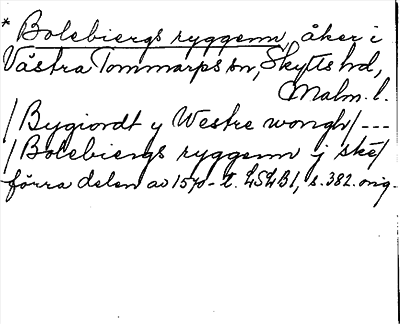 * Bolebiergs ryggenn, åker i
Västra Tommarps sn, Skytts hd,
Malm. l.
/Bygiordt y Westre wongh/ ---
/Bolebiergs ryggenn j ske/
förra delen av 1570-t. LSLB1, s. 382. orig.